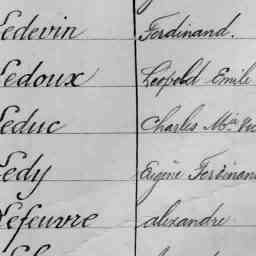 Ledevin Ferdinand.
Ledoux Léopold Emile
Leduc Charles Mie
Ledy Eugène Ferdinand
Lefeuvre alexandre